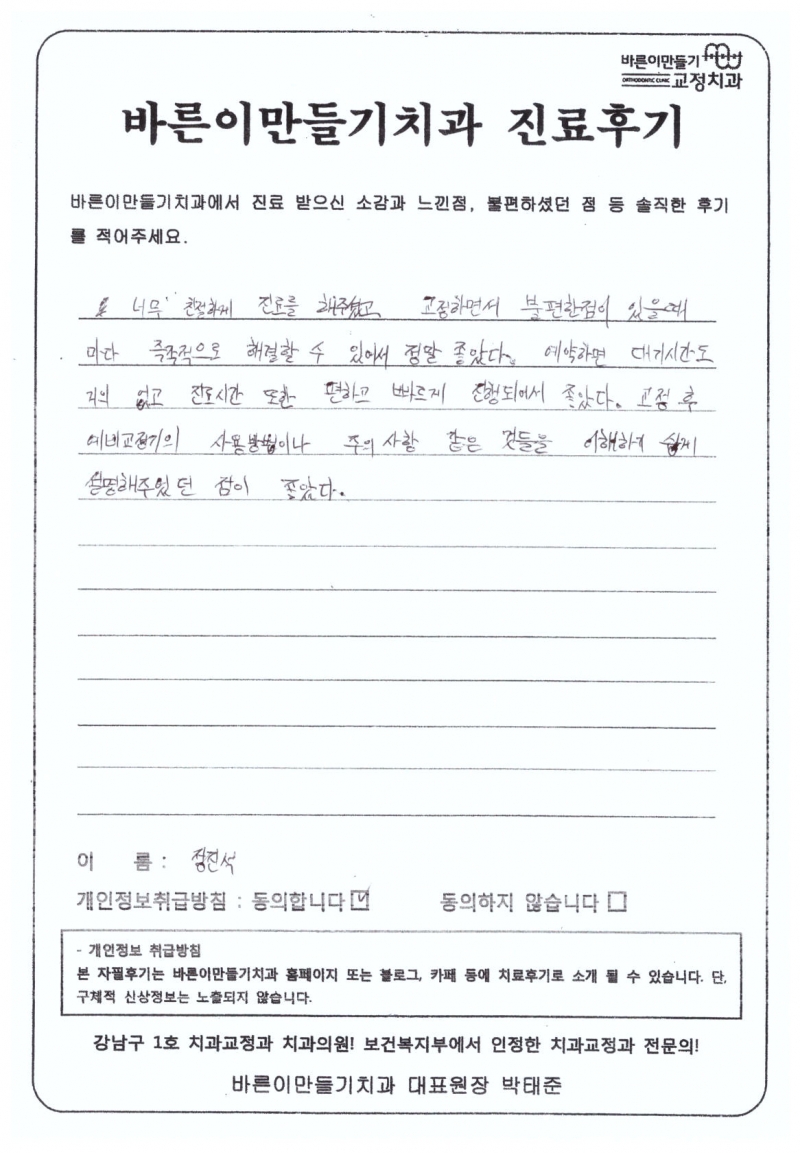 바른이만들기
ORTHODONTIC CLINIC 교정치과
바른이만들기치과 진료후기
바른이만들기치과에서 진료 받으신 소감과 느낀점, 불편하셨던 점 등 솔직한 후기
를 적어주세요.
너무 친절하게 진료를 해주셨고 교정하면서 불편한점이 있을때
마다 즉각적으로 해결할 수 있어서 정말 좋았다. 예약하면 대기시간도
거의 없고 진료시간 또한 편하고 빠르게 진행되어서 좋았다. 교정 후
사용방법이나 주의 사항 같은 것들을 이해하기 쉽게
설명해주었던 점이 좋았다.
이 름 : 정진석
개인정보취급방침 : 동의합니다 ☑ 동의하지 않습니다 □
- 개인정보 취급방침
본 자필후기는 바른이만들기치과 홈페이지 또는 블로그, 카페 등에 치료후기로 소개 될 수 있습니다. 단,
구체적 신상정보는 노출되지 않습니다.
강남구 1호 치과교정과 치과의원! 보건복지부에서 인정한 치과교정과 전문의!
바른이만들기치과 대표원장 박태준